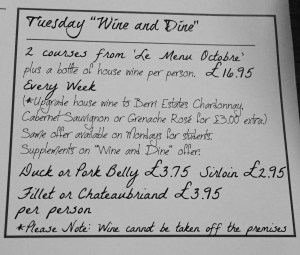 Tuesday "Wine and Dine"
2 courses from 'Le Menu Octobre'
plus a bottle of house wine per person. £16.95
Every Week
(*Upgrade house wine to Berri Estates Chardonnay,
Cabernet Sauvignon or Grenache Rosé for £3.00 extra.)
Same offer available on Mondays for students.
Supplements on "Wine and Dine" offer:
Duck or Pork Belly £3.75 Sirloin £2.95
Fillet or Chateaubriand £3.95
per person
*Please Note: Wine cannot be taken off the premises